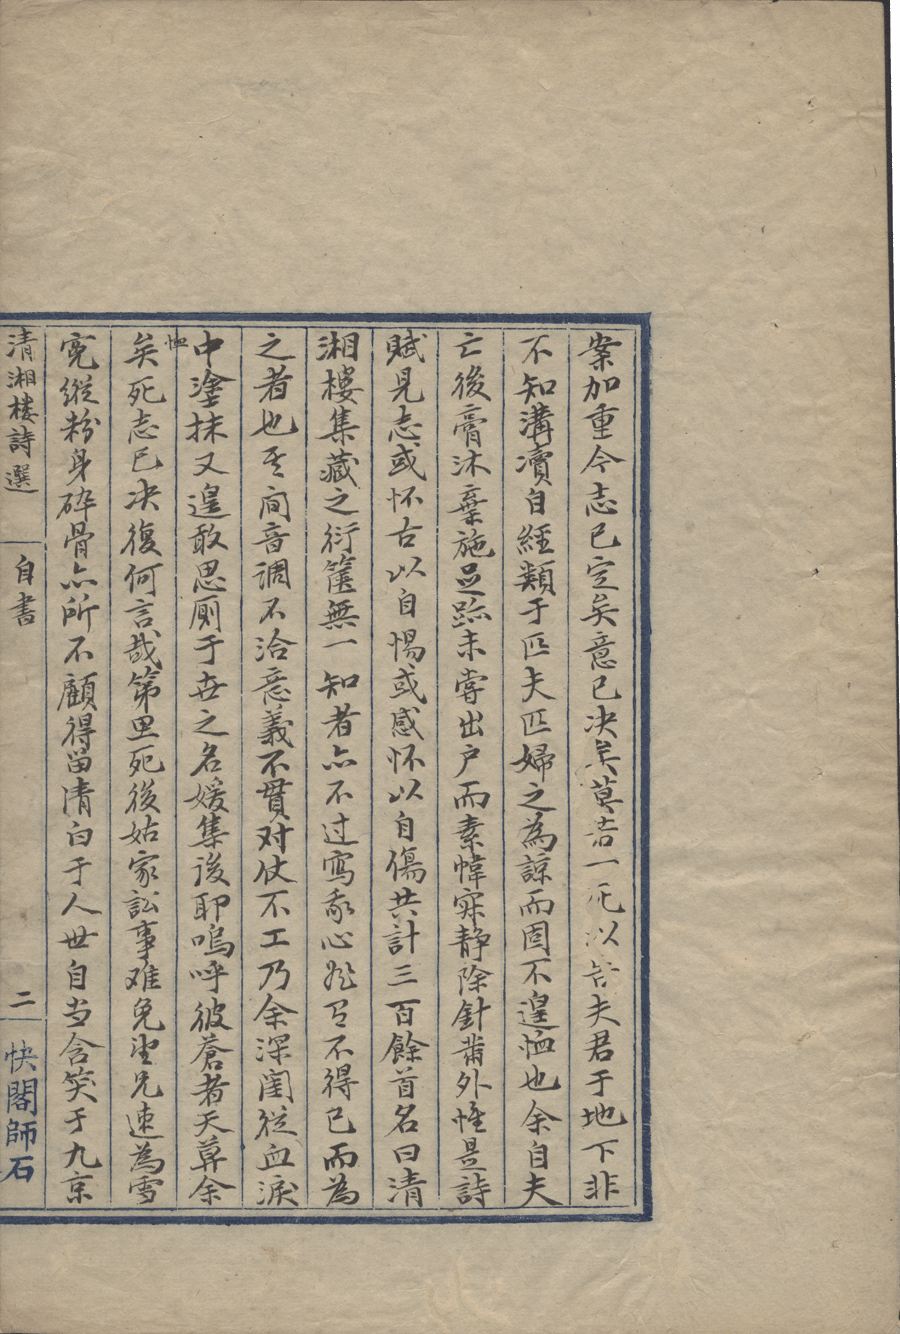 案加重今志已定矣意已决矣莫若一死以告夫君于地下非
不知溝瀆自經類于匹夫匹婦之為諒而固不遑恤也余自夫
亡後膏沐棄施足跡未嘗出户而素幃寂静除針黹外惟是詩
賦見志或怀古以自惕或感怀以自傷共計三百餘首名曰清
湘樓集藏之衍篋無一知者亦不过寫我心悲有不得已而為
之者也其间音调不洽意義不貫对仗不工乃余深闺從血淚
中塗抹又遑敢思厠于世之名媛集後耶嗚呼彼蒼者天葬余
恤
矣死志已决復何言哉第思死後姑家訟事难免望兄速為雪
寃縱粉身碎骨亦所不顧得留清白于人世自当含笑于九京
清湘樓詩選
自書
二
快閣師石